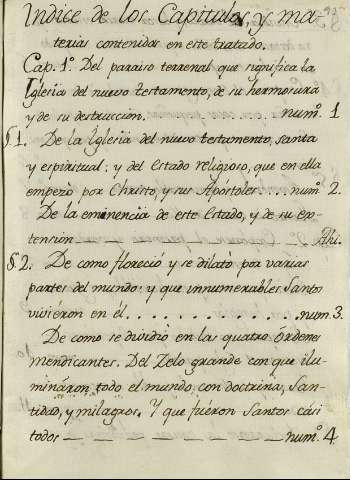 Indice de los Capitulos, y ma-
terias contenidos en este tratado.
Cap. 1º. Del paraiso terrenal que significa la
Iglesia del nuevo testamento, de su hermosura
y de su destruccion. numº. 1
§. 1. De la Iglesia del nuevo testamento, santa
y espiritual; y del Estado religioso, que en ella
empezó por Christo, y sus Apostoles .... numº 2.
De la eminencia de este Estado, y de su ex-
tension Ahi.
§. 2. De como floreció y se dilató por varias
partes del mundo; y que innumerables Santos
viviéron en él. . . . . . . . . . . . num. 3.
De como se dividió en las quatro Ordenes
mendicantes. Del Zelo grande con que ilu-
mináron todo el mundo con doctrina, San-
tidad, y milagros, Y que fuéron Santos cási
todos — — — — — — — numº. 4